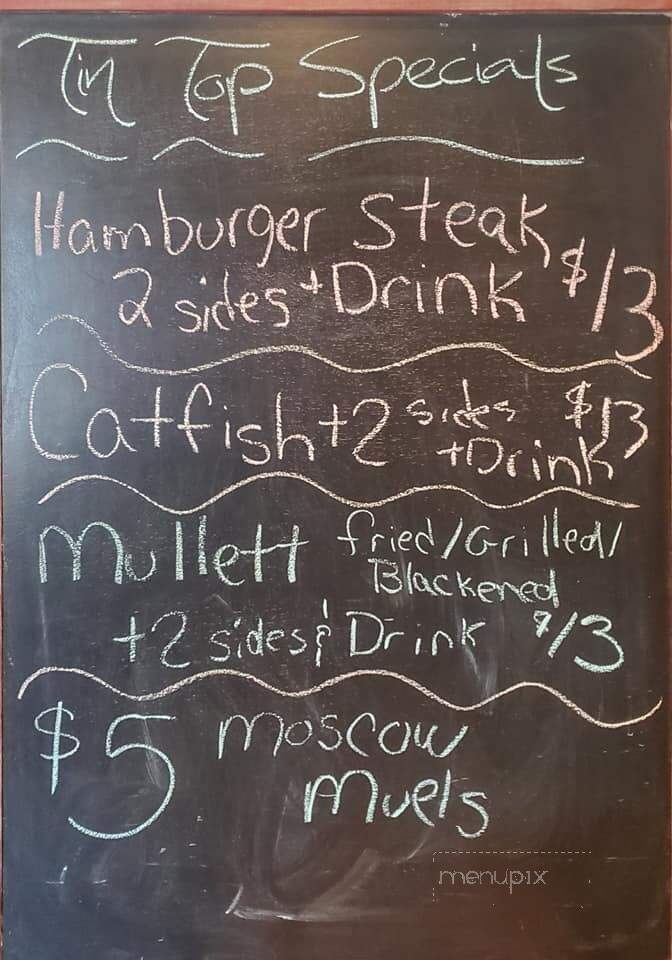 Tin Top Specials
Hamburger Steak
2 sides + Drink $13
Catfish + 2 sides $13
+Drink
Mullett fried/Grilled/
Blackened
+2 sides & Drink $13
$5 Moscow
Muels
menupix